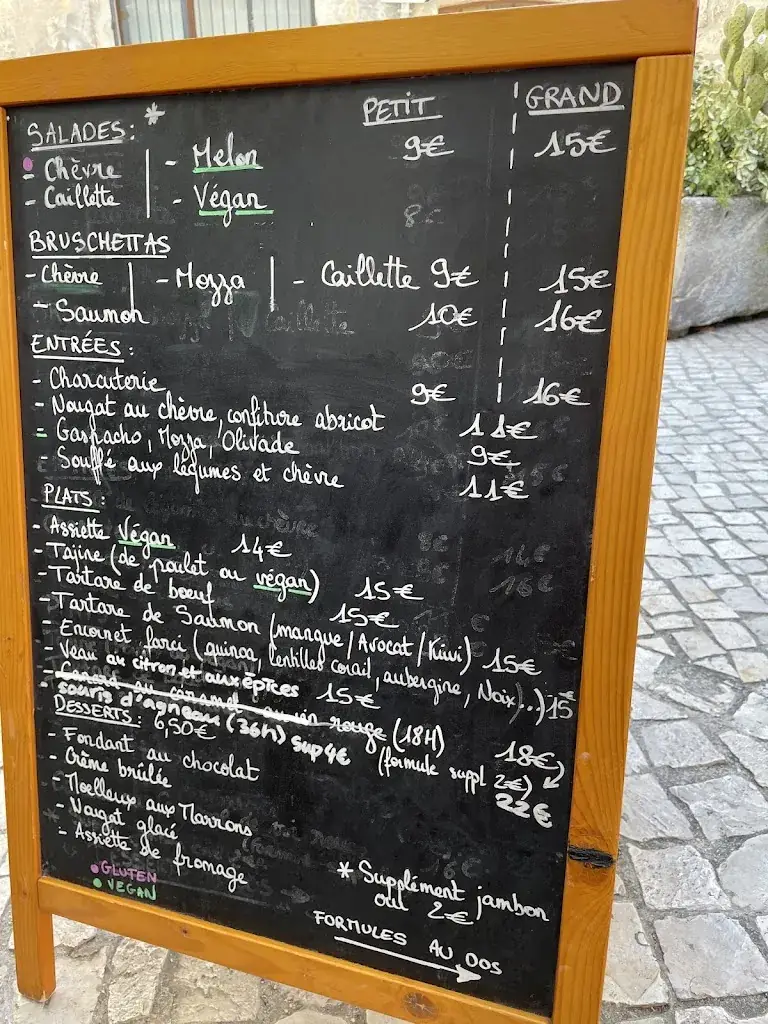 PETIT GRAND
SALADES : *
- Chèvre | - Melon 9€ 15€
- Caillette | - Végan
BRUSCHETTAS
- Chèvre | - Mozza | - Caillette 9€ 15€
- Saumon 10€ 16€
ENTRÉES :
- Charcuterie 9€ 16€
- Nougat au chèvre, confiture abricot 11€
- Gaspacho, Mozza, Olivade 9€
- Soufflé aux légumes et chèvre 11€
PLATS :
- Assiette Végan 14€
- Tajine (de poulet ou végan) 15€
- Tartare de bœuf 15€
- Tartare de Saumon (mangue / Avocat / Kiwi) 15€
- Encornet farci (quinoa, lentilles corail, aubergine, Noix)...) 15€
- Veau au citron et aux épices 15€
- Canard au caramel au vin rouge (18H) 18€
- souris d'agneau (36h) sup 4€ (formule suppl 2€) 22€
DESSERTS : 6,50€
- Fondant au chocolat
- Crème brûlée
- Moelleux aux Marrons
- Nougat glacé
- Assiette de fromage
• GLUTEN
• VEGAN
* Supplément jambon
2€
FORMULES AU DOS